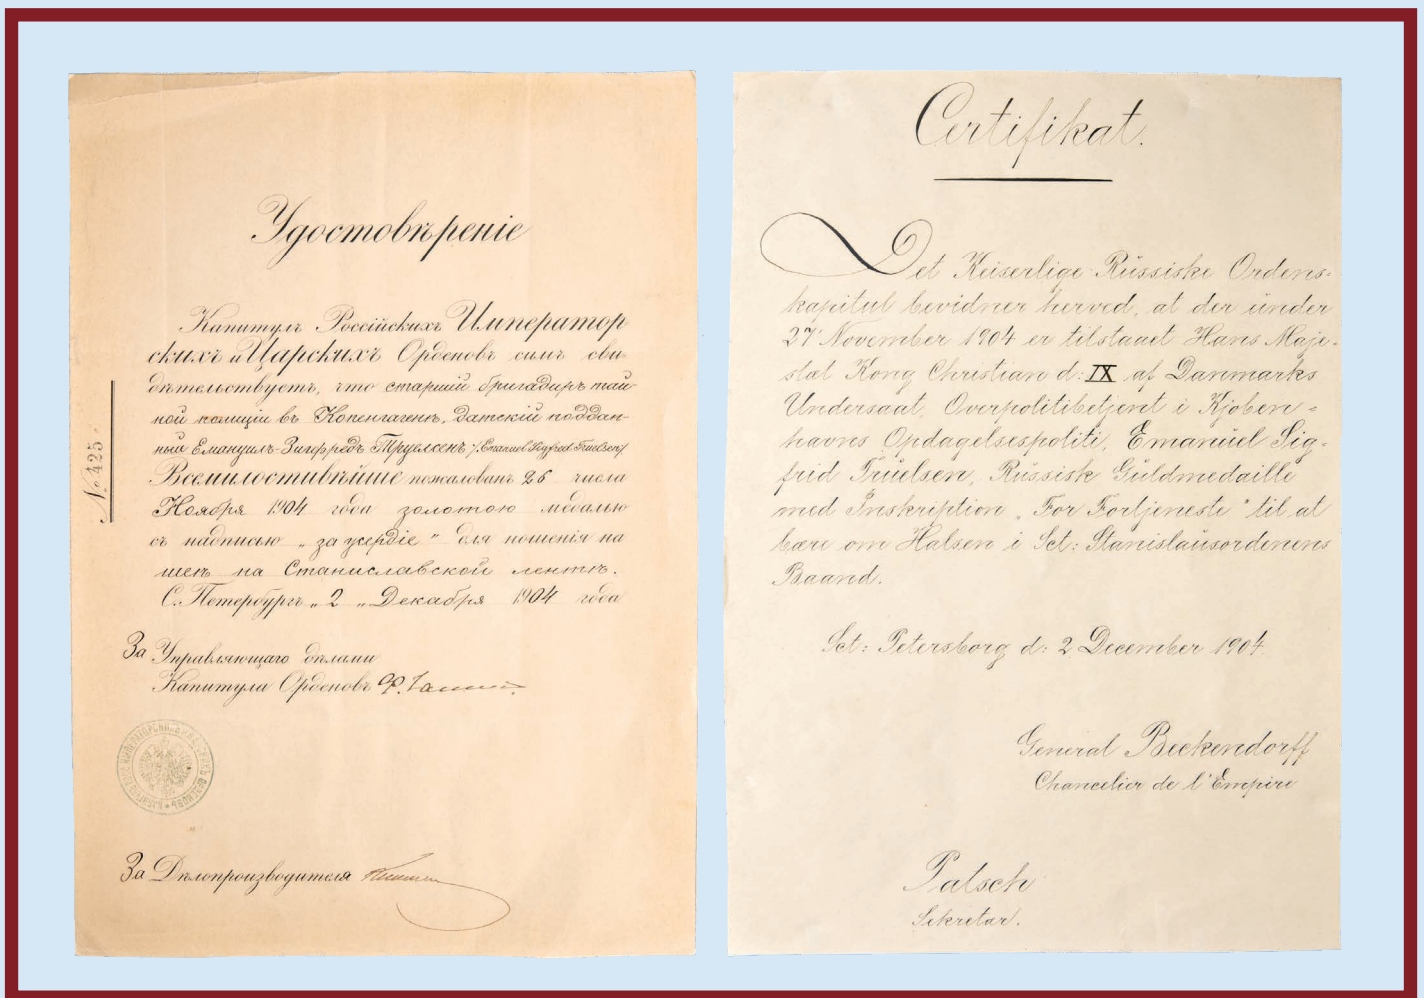 Удостовѣреніе
Капитулъ Россійскихъ Император
скихъ и Царскихъ Орденовъ симъ сви-
дѣтельствуетъ, что старшій бригадиръ тай-
ной полиціи въ Копенгагенѣ, датскій поддан-
ный Емануилъ-Зигфредъ Труелсенъ /Emanuel Sigfred Truelsen/
Всемилостивѣйше пожалованъ 26 числа
Ноября 1904 года золотою медалью
съ надписью „за усердіе" для ношенія на
шеѣ на Станиславской лентѣ.
С. Петербургъ „2 „ Декабря 1904 года
№ 425.
За Управляющаго дѣлами
Капитула Орденовъ
За Дѣлопроизводителя
Certifikat.
Det Keiserlige Russiske Ordens-
kapitul bevidner herved, at der under
27 November 1904 er tilstaaet Hans Maje-
stæt Kong Christian d: IX af Danmarks
Undersaat, Overpolitibetjent i Kjøben-
havns Opdagelsespoliti, Emanuel Sig-
frid Truelsen, Russisk Guldmedaille
med Inskription „For Fortjeneste" til at
bære om Halsen i Sct: Stanislausordenens
Baand.
Sct: Petersborg d: 2 December 1904.
General Beckendorff
Chancelier de l'Empire
Palsch
Sekretær.